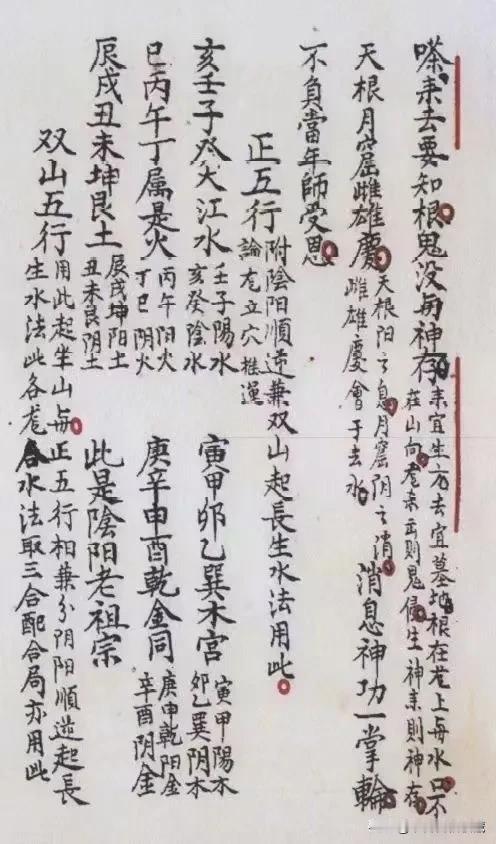 嗏来去要知根鬼没与神存
来宜生方去宜墓地根在龙上与水口不
在山向龙来则鬼侵生神来则神存
天根月窟雌雄慶
天根阳之息月窟阴之消
雌雄慶会于去水
消息神功一掌輪
不负當年師受恩
正五行
附陰阳順逆兼双山起長生水法用此
論龙立穴推運
亥壬子癸大江水
壬子陽水
亥癸陰水
寅甲卯乙巽木宮
寅甲陽木
卯乙巽阴木
巳丙午丁属是火
丙午阳火
丁巳阴火
庚辛申酉乾金同
庚申乾阳金
辛酉阴金
辰戌丑未坤艮土
辰戌坤阳土
丑未艮阴土
此是陰阳老祖宗
双山五行
用此起坐山与正五行相兼分阴阳順逆起長
生水法此各龙各水法取三合配合局亦用此